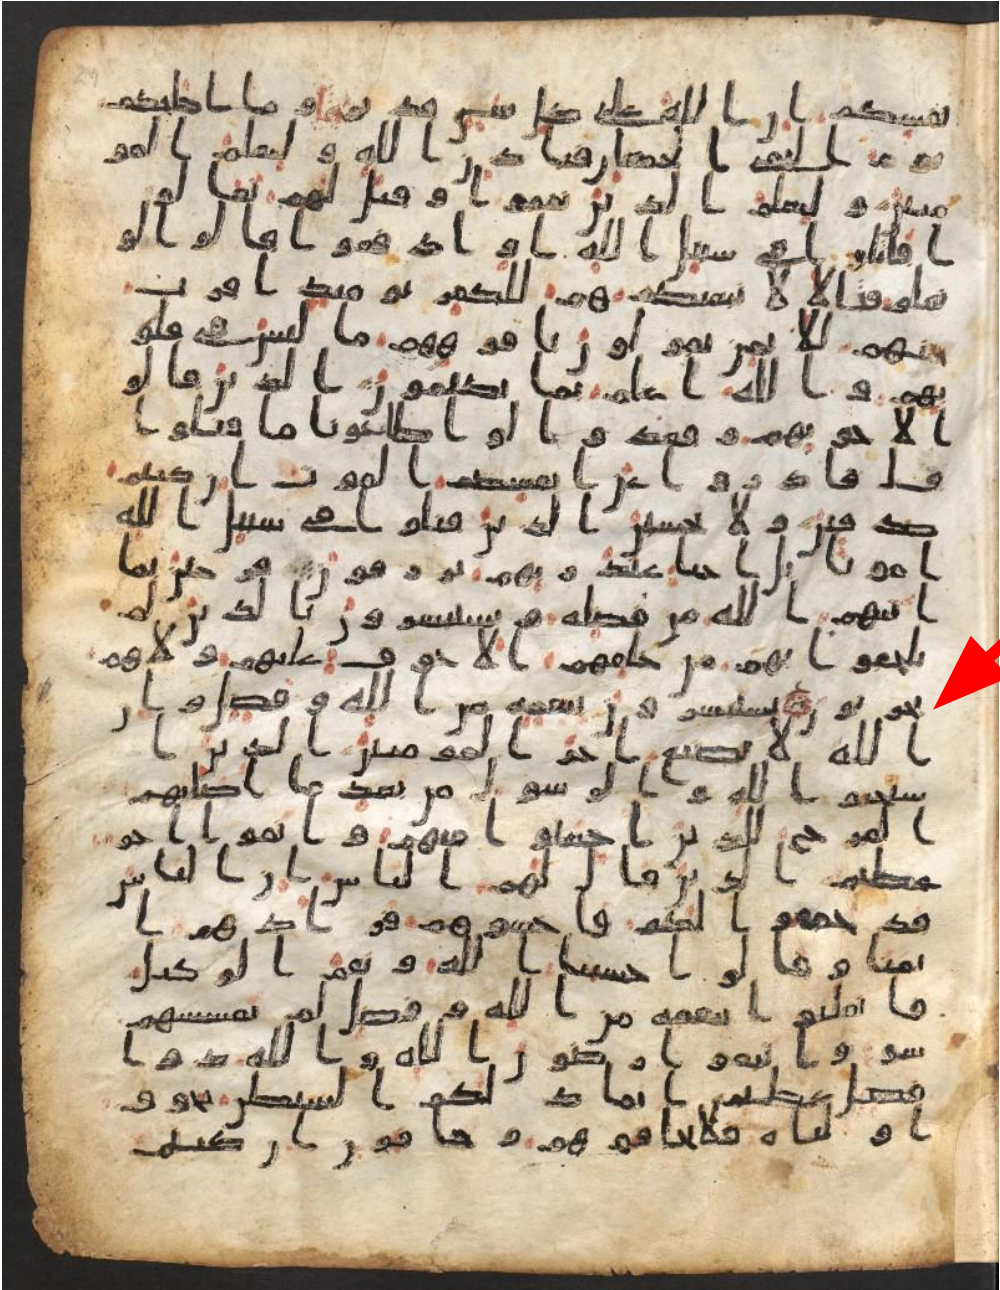 نفسكم ان الله على كل شى قدير وما اصابكم
يوم التقى الجمعان فباذن الله وليعلم المو
منين وليعلم الذين نفقوا وقيل لهم تعالو
ا قاتلوا فى سبيل الله او ادفعوا قالوا لو
نعلم قتالا لا تبعنكم هم للكفر يومئذ اقرب
منهم للايمن يقولون بافوههم ما ليس فى قلو
بهم والله اعلم بما يكتمون الذين قالو
ا لاخونهم وقعدوا لو اطاعونا ما قتلوا
قل فادروا عن انفسكم الموت ان كنتم
صدقين ولا تحسبن الذين قتلوا فى سبيل الله
اموتا بل احيا عند ربهم يرزقون فرحين بما
اتيهم الله من فضله ويستبشرون بالذين لم
يلحقوا بهم من خلفهم الا خوف عليهم ولا هم
يحزنون يستبشرون بنعمة من الله وفضل وان
الله لا يضيع اجر المومنين الذين ا
ستجبوا لله والرسول من بعد ما اصابهم
القرح للذين احسنوا منهم واتقوا اجر
عظيم الذين قال لهم الناس ان الناس
قد جمعوا لكم فاخشوهم فزادهم ا
يمنا وقالوا حسبنا الله ونعم الوكيل
فانقلبوا بنعمة من الله وفضل لم يمسسهم
سو واتبعوا رضون الله والله ذوا
فضل عظيم انما ذلكم الشيطن يخوف
اولياه فلا تخافوهم وخافون ان كنتم